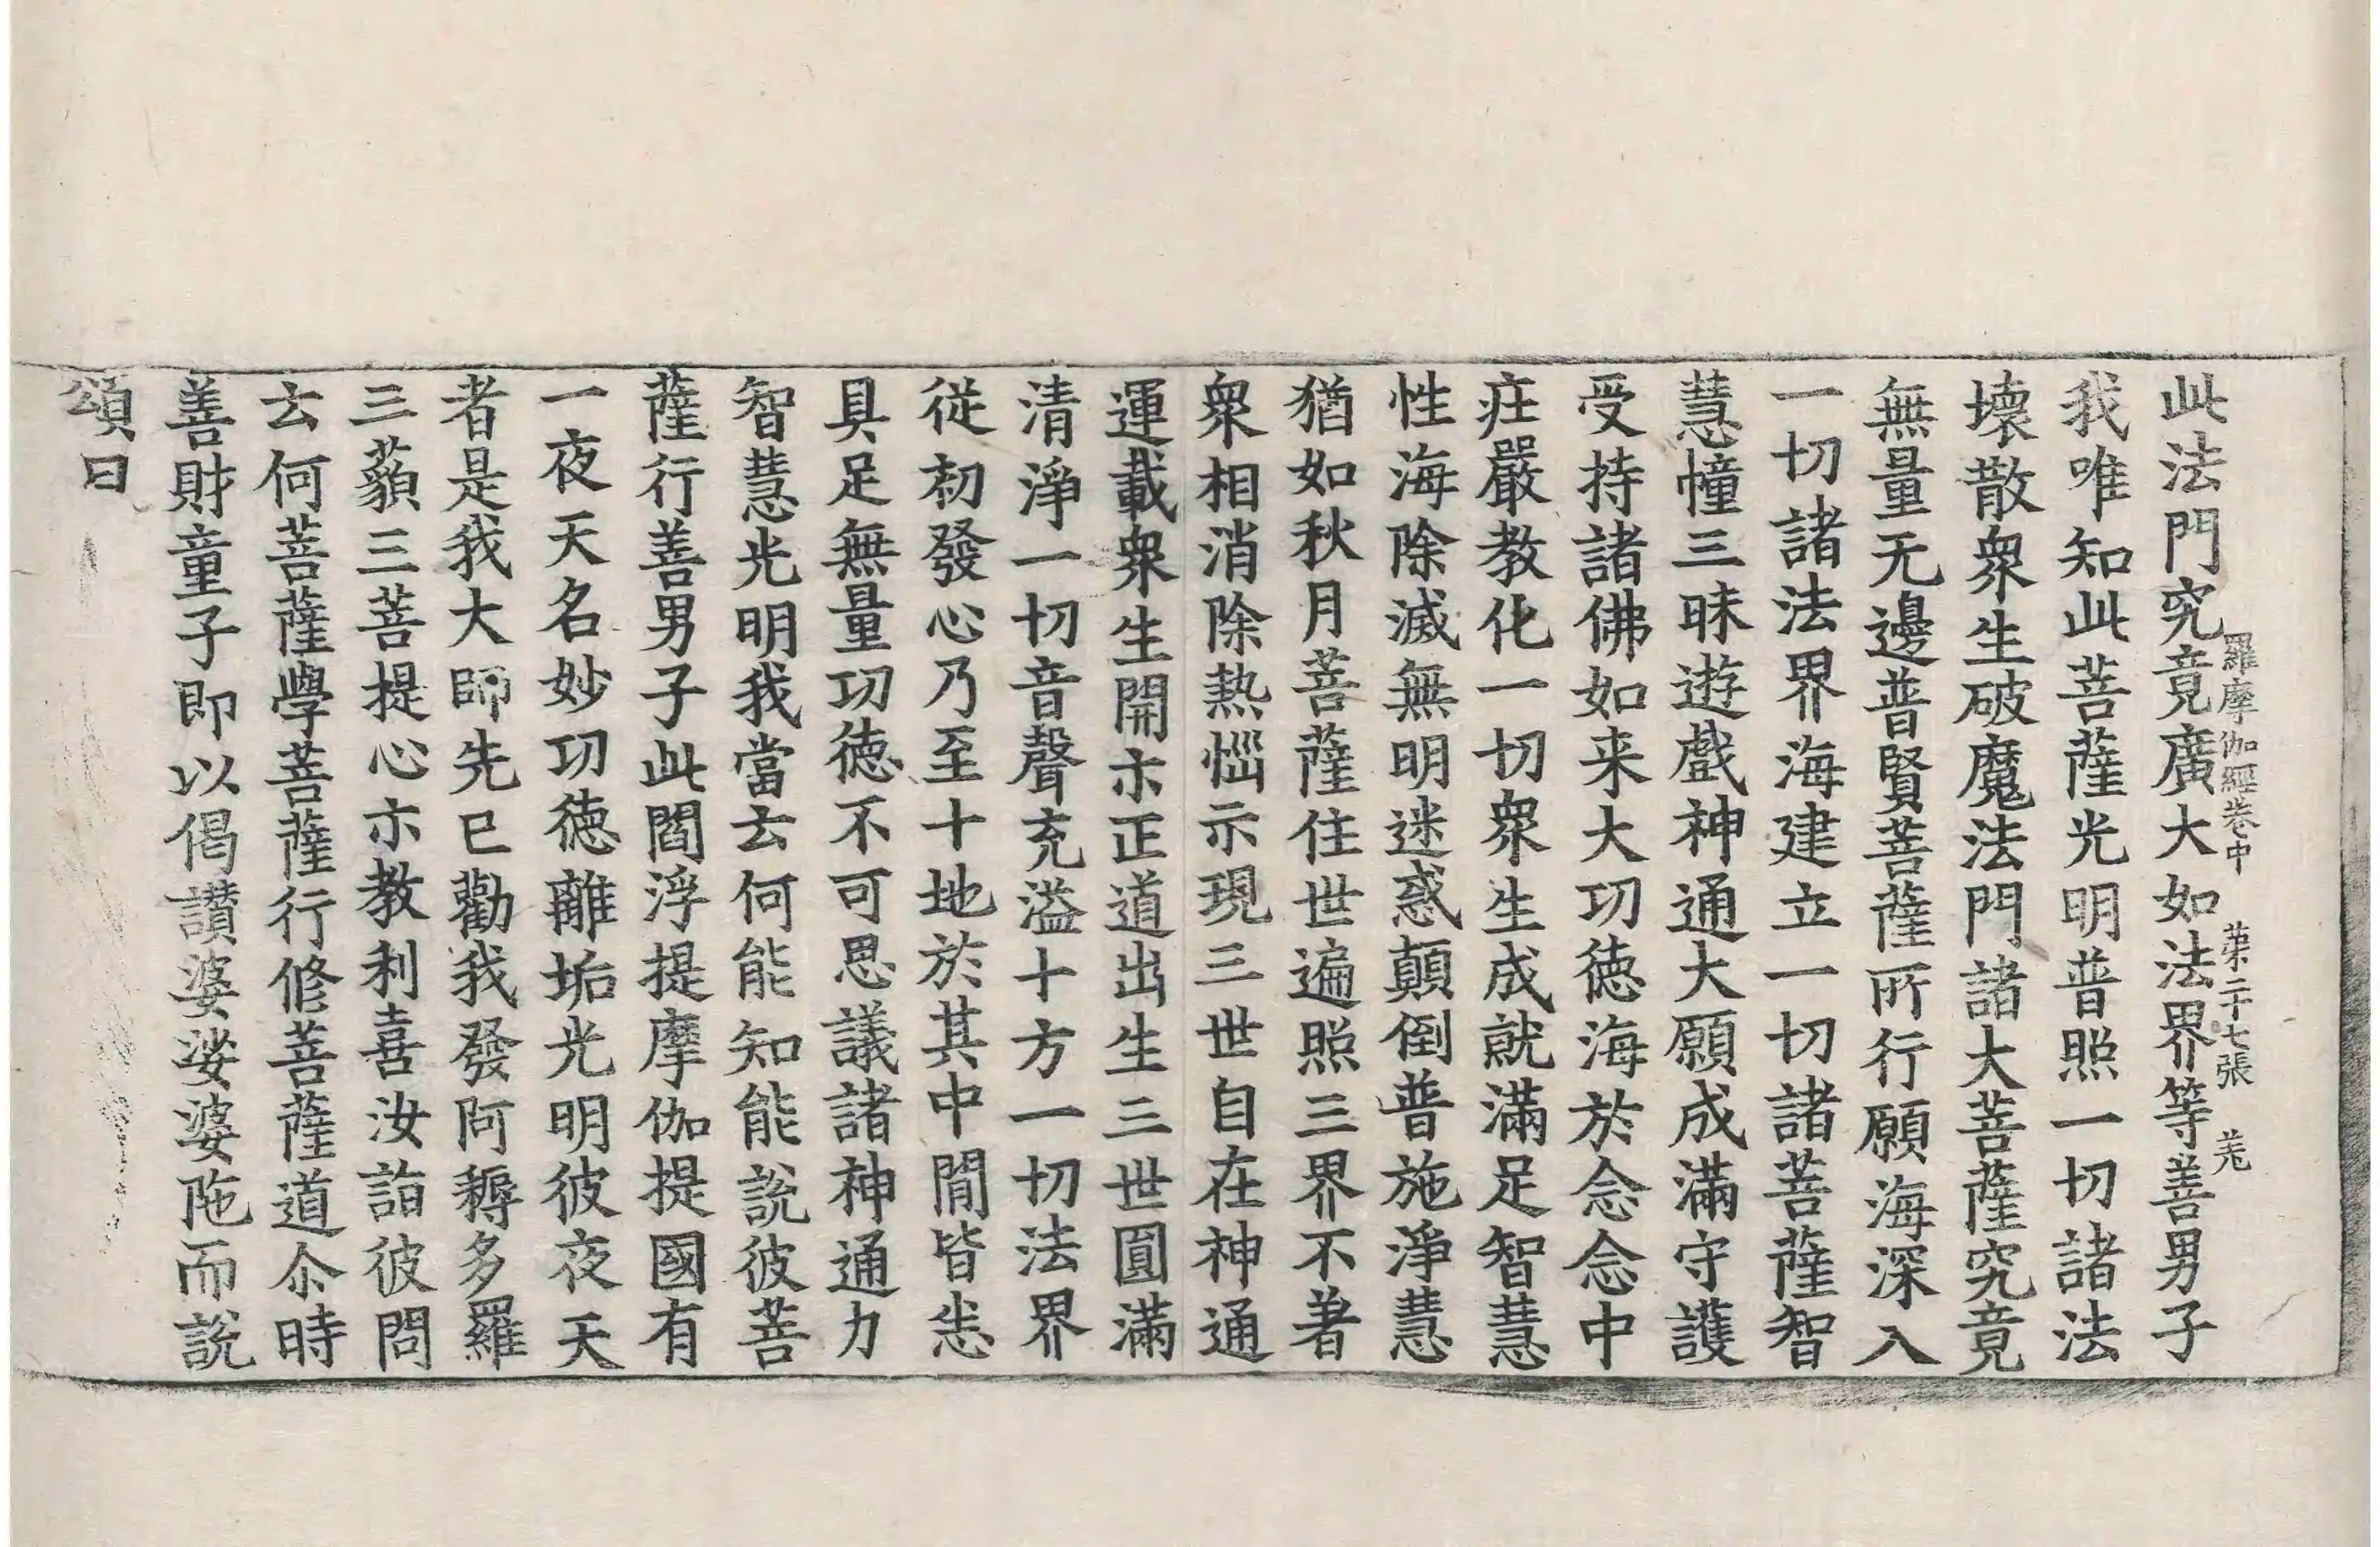 羅摩伽經卷中 第二十七張 羌
此法門究竟廣大如法界等善男子
我唯知此菩薩光明普照一切諸法
壞散衆生破魔法門諸大菩薩究竟
無量无邊普賢菩薩所行願海深入
一切諸法界海建立一切諸菩薩智
慧幢三昧遊戲神通大願成滿守護
受持諸佛如来大功德海於念念中
庄嚴教化一切衆生成就滿足智慧
性海除滅無明迷惑顛倒普施淨慧
猶如秋月菩薩住世遍照三界不著
衆相消除熱惱示現三世自在神通
運載衆生開示正道出生三世圓滿
清淨一切音聲充溢十方一切法界
従初發心乃至十地於其中閒皆悉
具足無量功德不可思議諸神通力
智慧光明我當云何能知能說彼菩
薩行善男子此閻浮提摩伽提國有
一夜天名妙功德離垢光明彼夜天
者是我大師先已勸我發阿耨多羅
三藐三菩提心亦教利喜汝詣彼問
云何菩薩學菩薩行修菩薩道尒時
善財童子即以偈讃婆娑婆陁而說
頌曰